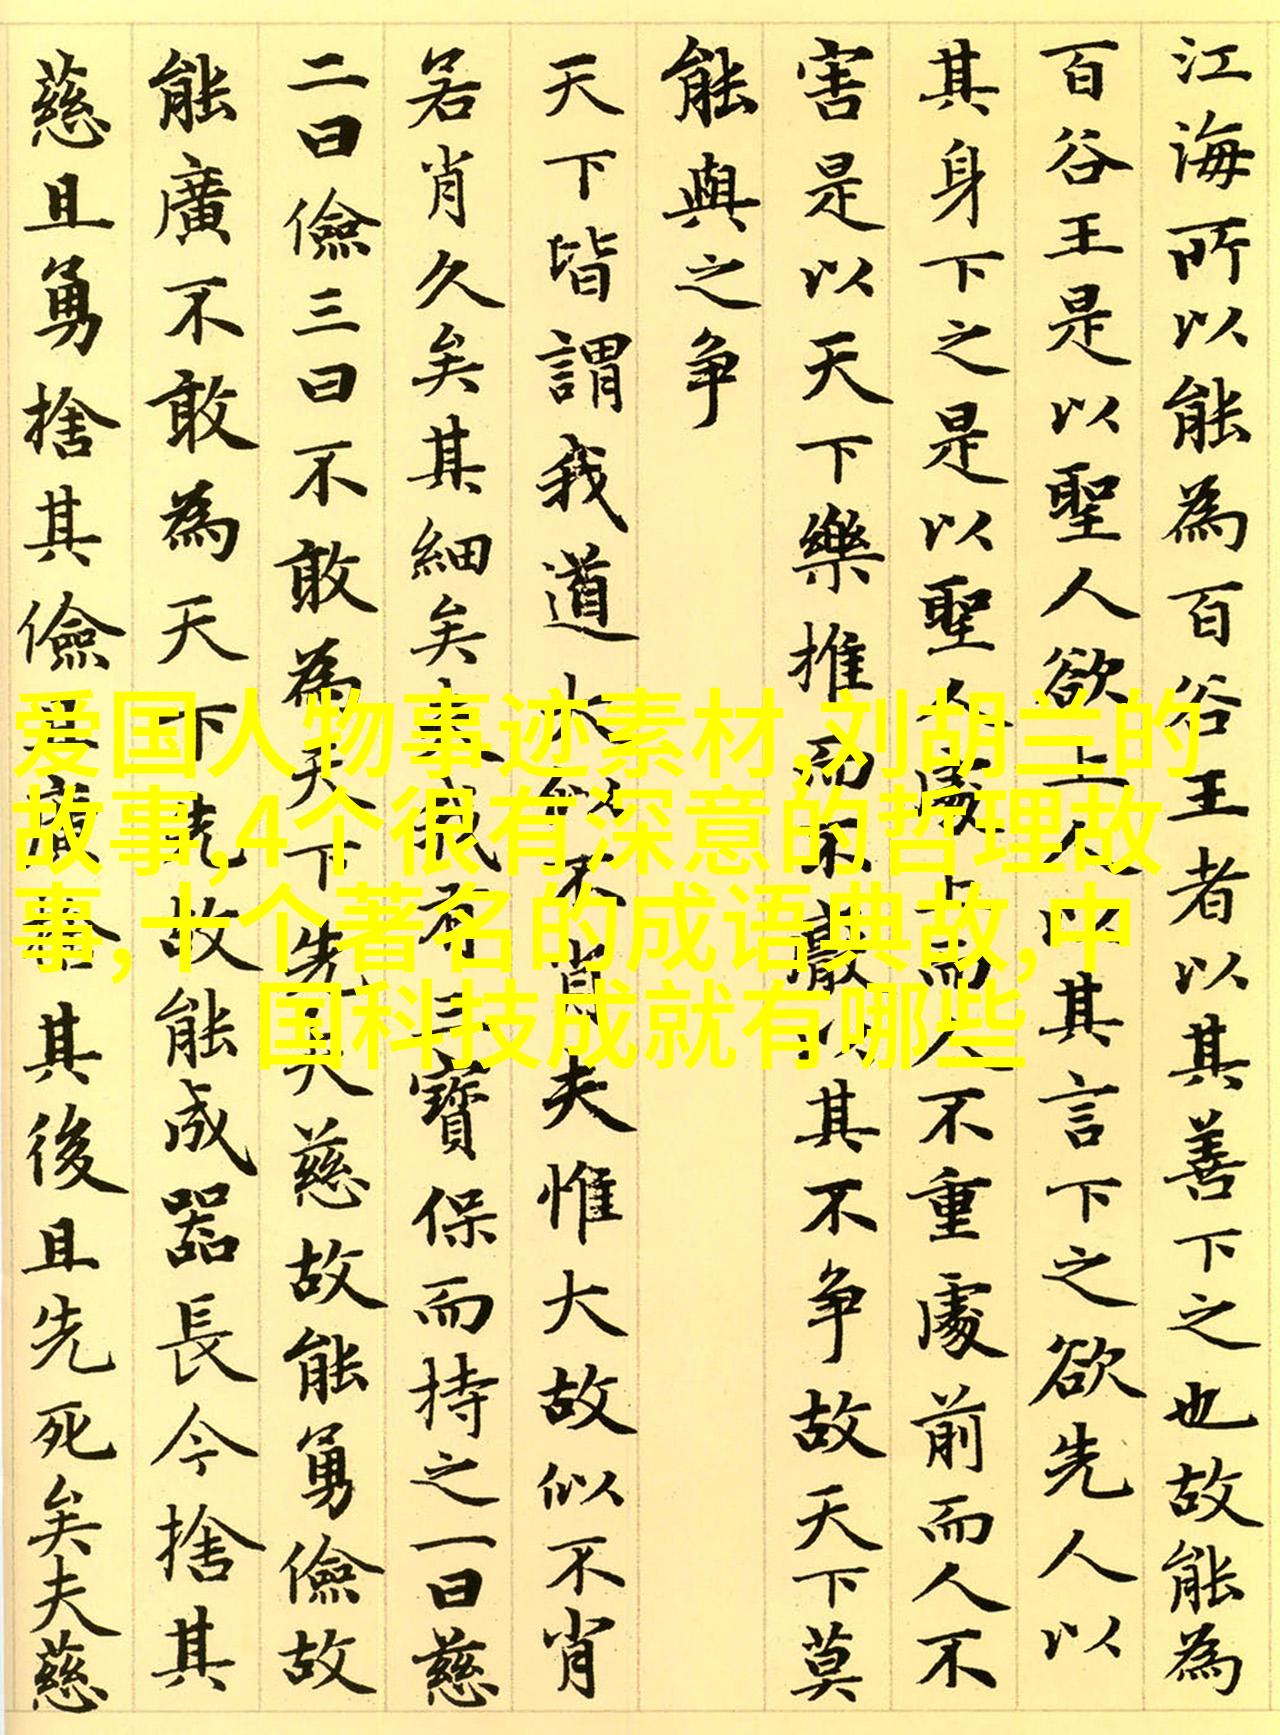 江海所以能為百谷王者以其善下之也故能為
百谷王是以聖人欲上人以其言下之欲先人以
其身下之是以聖人處上而人不重處前而人不
害是以天下樂推而不厭以其不争故天下莫
能與之争
天下皆謂我道大似不肖夫惟大故似不肖
若肖久矣其細矣夫我有三寶保而持之一曰慈
二曰儉三曰不敢為天下先夫慈故能勇儉故
能廣不敢為天下先故能成器長今捨其
慈且勇捨其儉且廣捨其後且先死矣夫慈
爱国人物事迹素材,刘胡兰的
故事,4个很有深意的哲理故
事,十个著名的成语典故,中
国科技成就有哪些